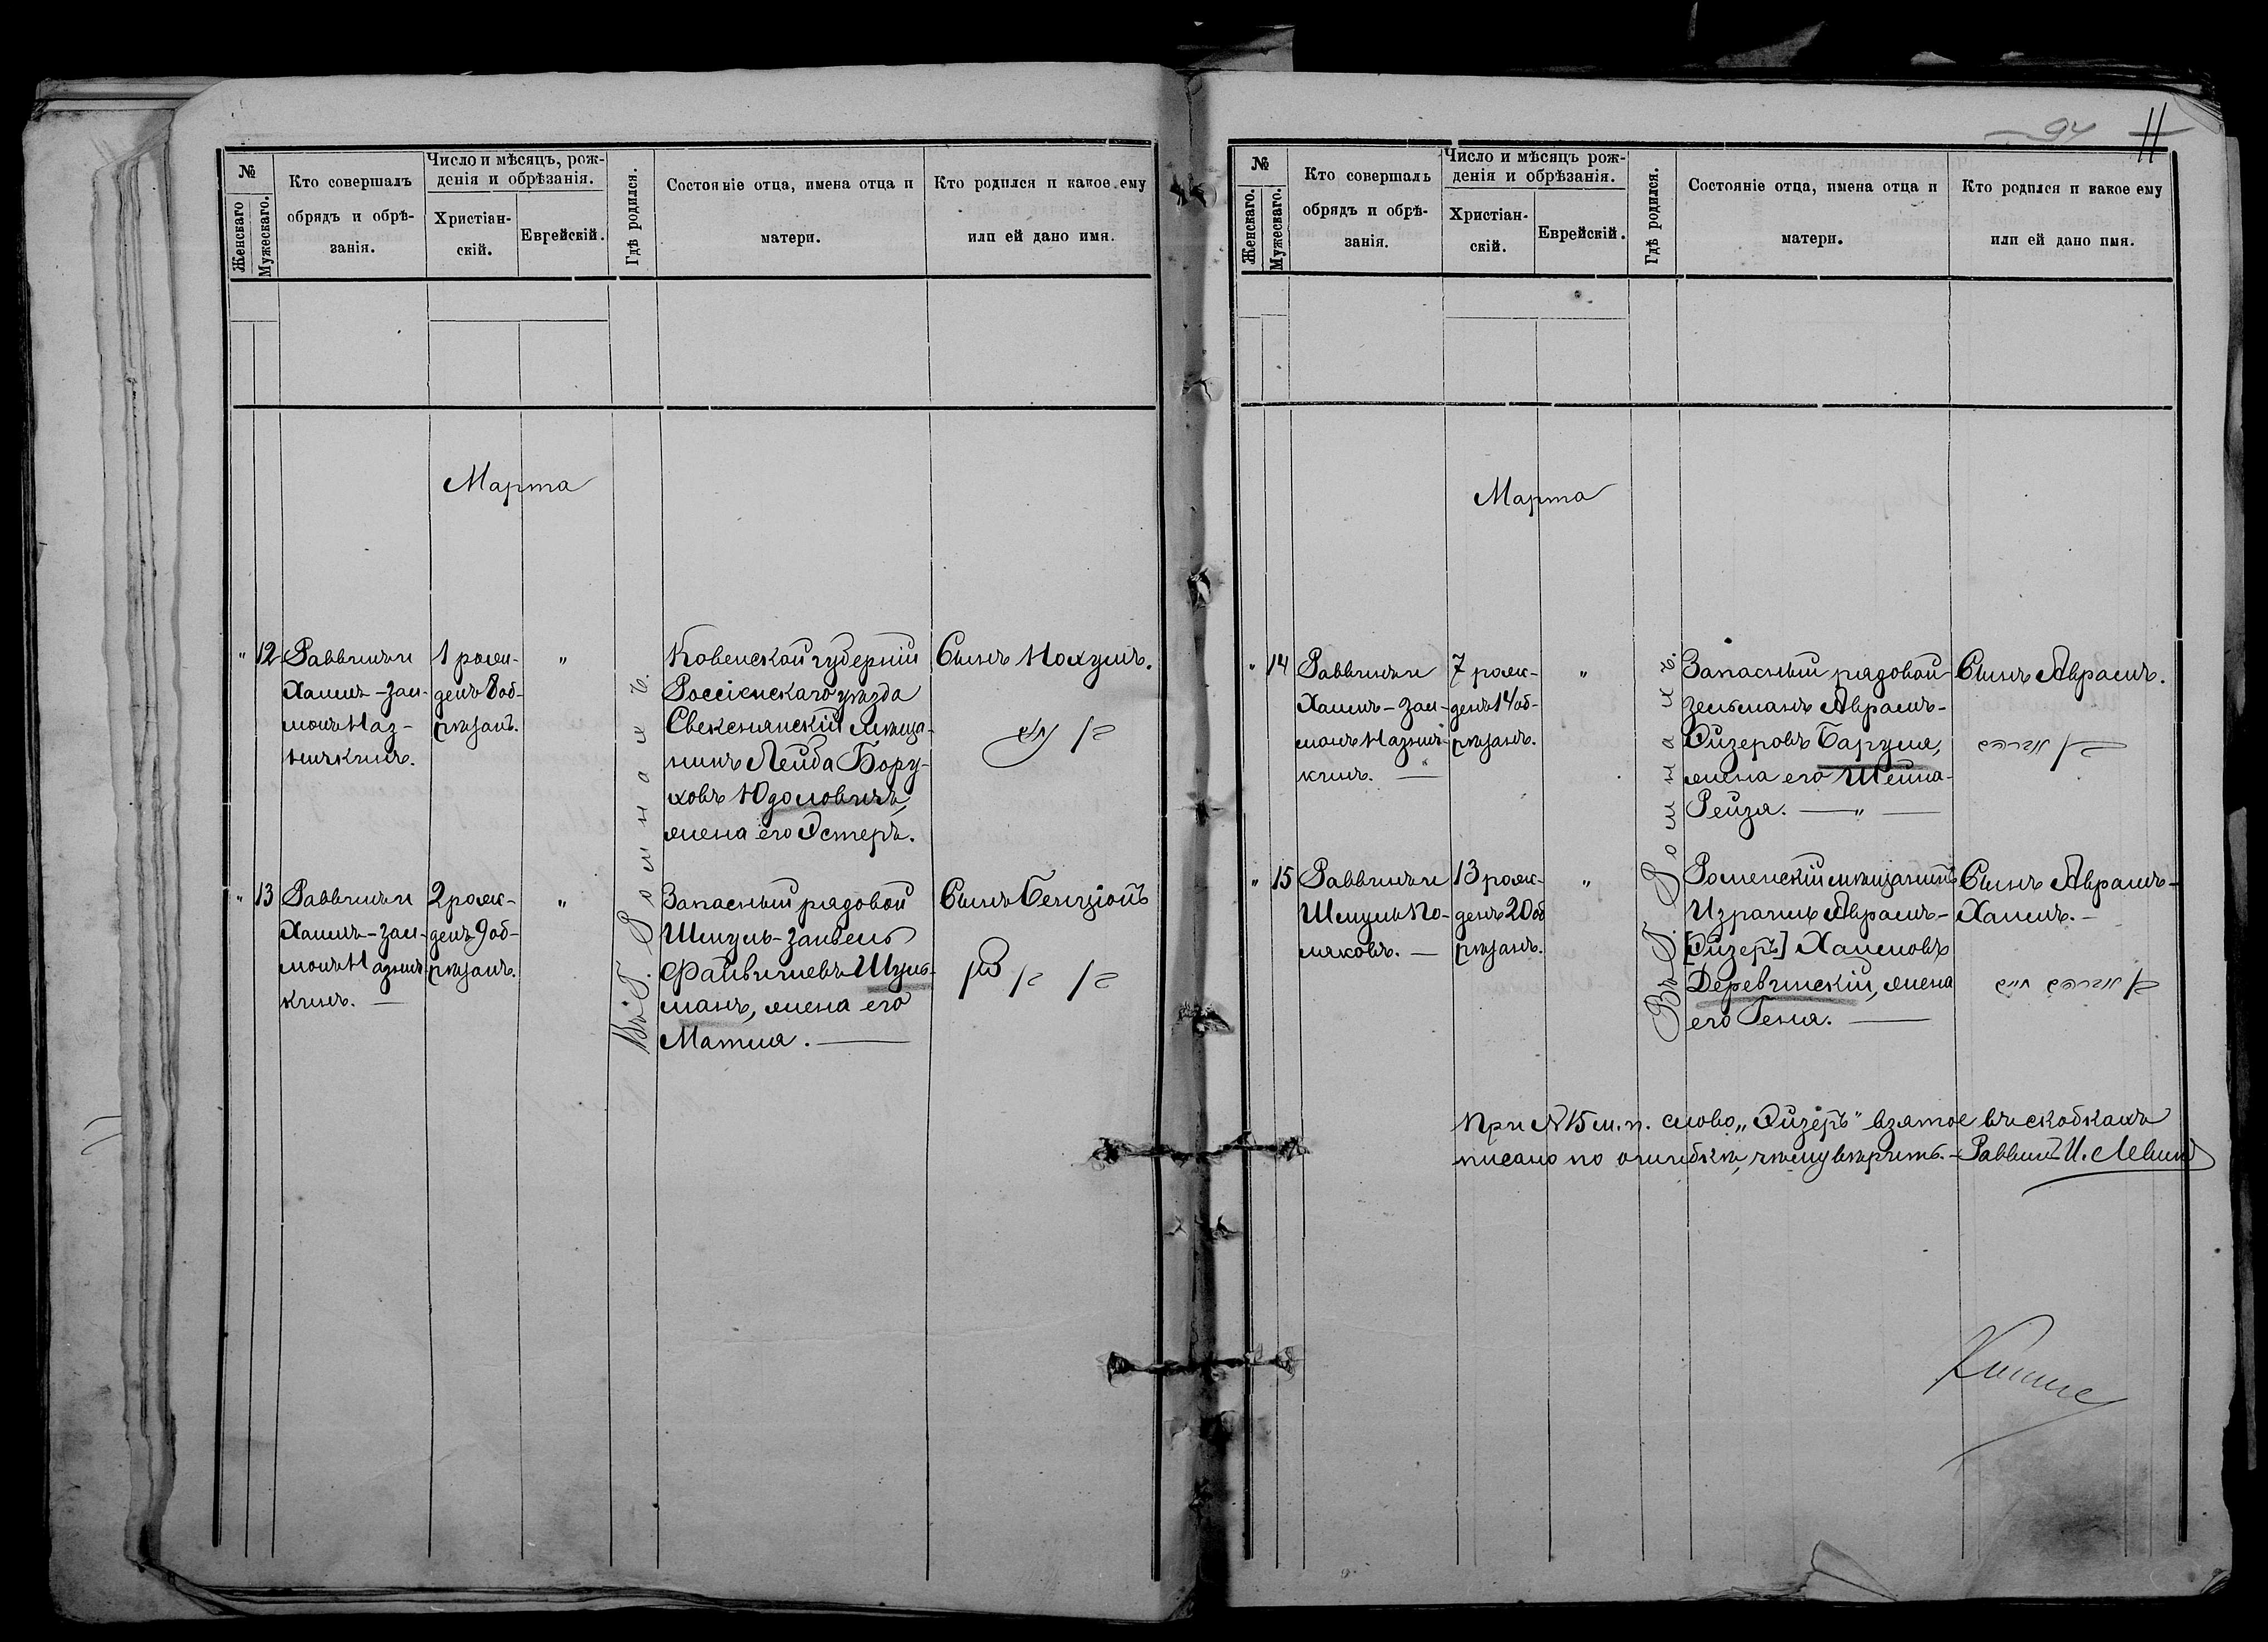 №
Женскаго
Мужескаго.
Кто совершалъ
обрядъ и обрѣ-
занія.
Число и мѣсяцъ, рож-
денія и обрѣзанія.
Христіан-
скій.
Еврейскій.
Гдѣ родился.
Состояніе отца, имена отца и
матери.
Кто родился и какое ему
или ей дано имя.
Марта
" 12
Раввинъ и
Хаимъ-Зал-
монъ Наз-
1 рож-
денъ 8 об-
рѣзанъ.
"
Въ Г. Ромнахъ.
Ковенской губерніи
Россіенскаго уѣзда
Свекснянскій мѣща-
нинъ Лейба Бору-
ховъ Юдоловичъ,
жена его Эстеръ.
Сынъ Нохумъ.
" 13
Раввинъ и
Хаимъ-Зал-
2 рож-
денъ 9 об-
рѣзанъ.
"
Запасный рядовой
Шмуль-Занвель
Файвишевъ Шуль-
манъ, жена его
Матля.
Сынъ Бенціонъ
בן ציון
94
11
№
Женскаго.
Мужескаго.
Кто совершалъ
обрядъ и обрѣ-
занія.
Число и мѣсяцъ рож-
денія и обрѣзанія.
Христіан-
скій.
Еврейскій.
Гдѣ родился.
Состояніе отца, имена отца и
матери.
Кто родился и какое ему
или ей дано имя.
Марта
" 14
Раввинъ и
Хаимъ-Зал-
7 рож-
денъ 14 об-
рѣзанъ.
"
Въ Г. Ромнахъ.
Запасный рядовой
Зельманъ Аврамъ-
Эйзеровъ Баруля,
жена его Шейна-
Рейзя. — " —
Сынъ Аврамъ.
" 15
Раввинъ и
Шмуль По-
ляковъ. —
13 рож-
денъ 20 об
рѣзанъ.
"
Роменскій мѣщанинъ
Израиль Аврамъ-
[Эйзеръ] Хаимовъ
Деревинскій, жена
его Геня. —
Сынъ Аврамъ-
Хаимъ. —
При № 15 м. п. слово „Эйзеръ" взятое въ скобкахъ
писано по ошибкѣ, чему вѣрить. — Раввинъ И. Левинъ